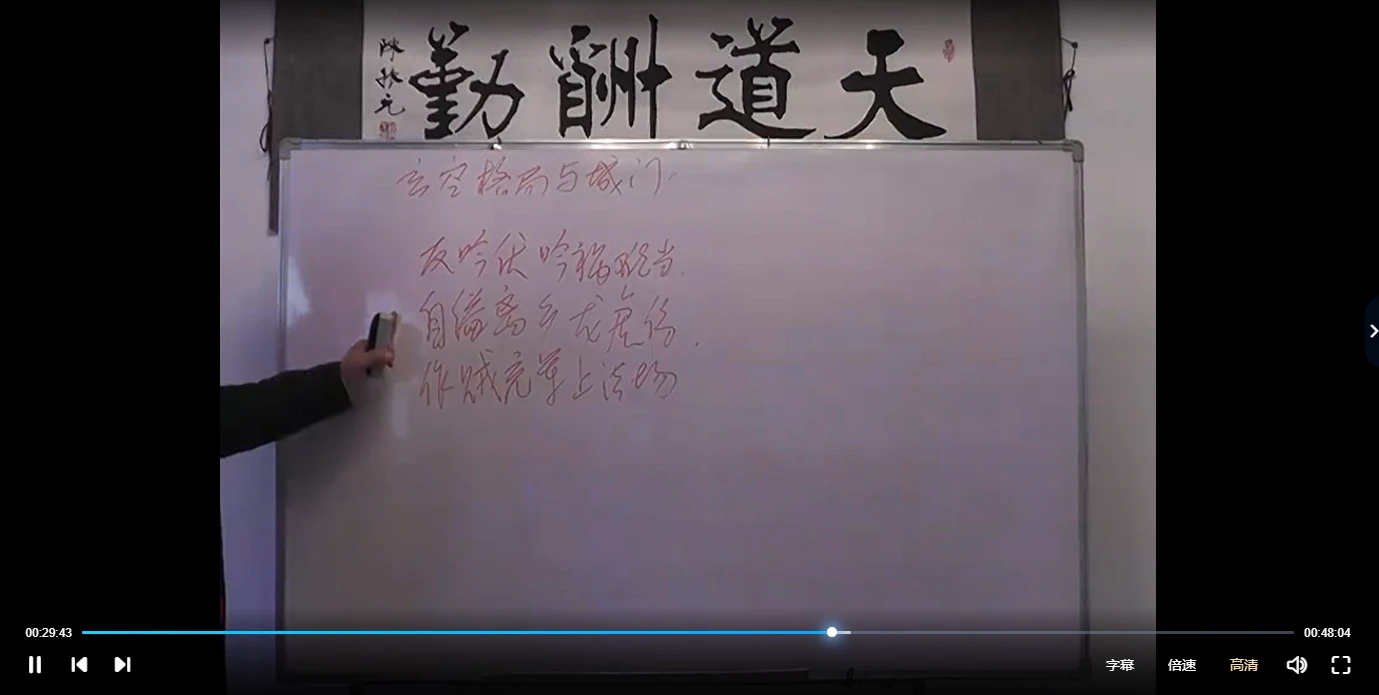 天道酬勤
玄空格局与城门
反吟伏吟祸难当
自缢离乡龙虎伤
作贼充军上法场
00:29:43
00:48:04
字幕 倍速 高清